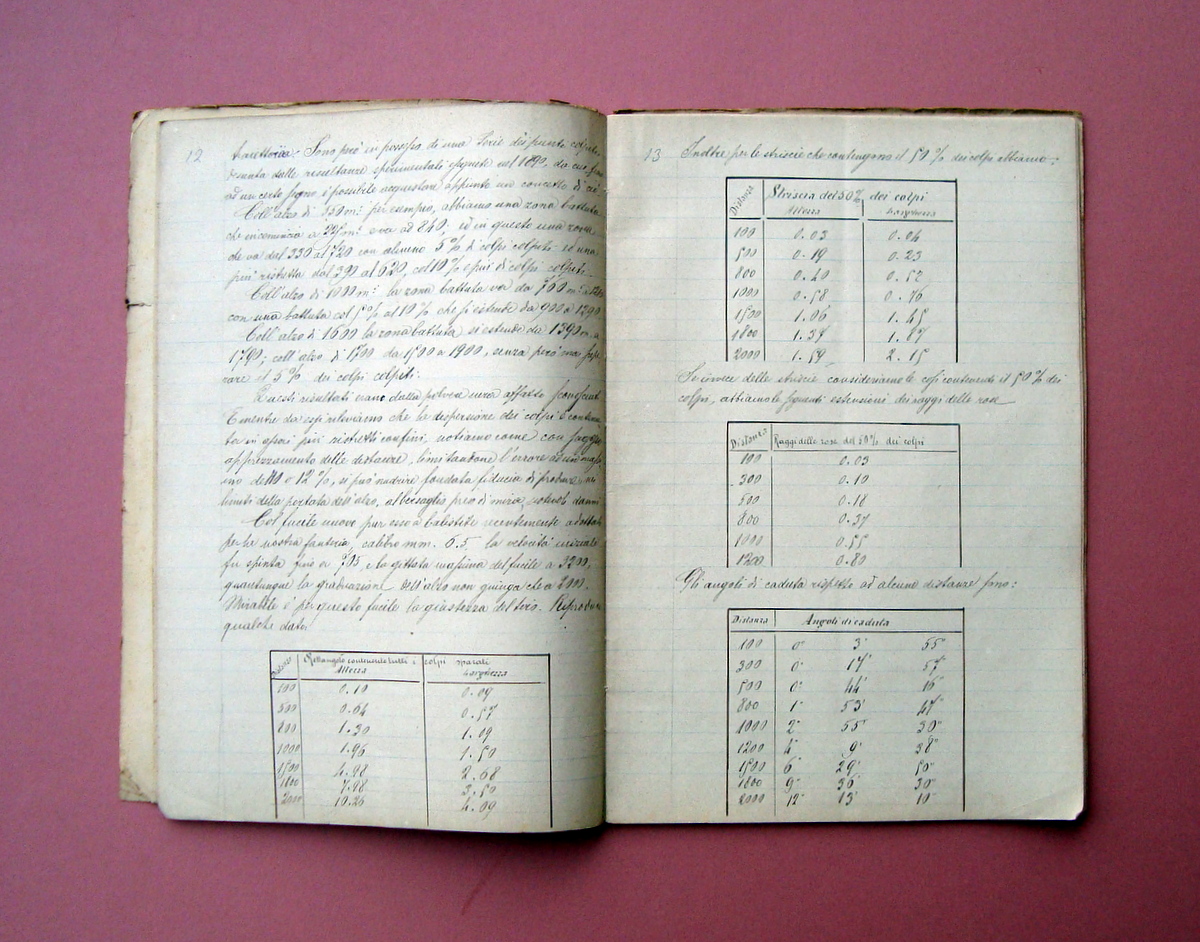 12
traiettoria. Sono però in possesso di una serie di
dalle risultanze sperimentali eseguite nel 1890, da cui fino
ad un certo segno è possibile acquistare appunto un concetto di ciò
Coll'alzo di 550 m: per esempio, abbiamo una zona battuta
che incomincia a 225 m: e va ad 840, ed in questo una zona
che va dal 330 al 720 con almeno 5% di colpi colpiti ed una
più ristretta dal 390 al 620, col 10% e più di colpi colpiti
Coll'alzo di 1000 m: la zona battuta va da 700 m: a
con una battuta col 5% al 10% che si estende da 900 a 1290
Coll'alzo di 1600 la zona battuta si estende da 1390 m. a
1790; coll'alzo di 1700 da 1500 a 1900, senza però mai supe
rare il 5% dei colpi colpiti.
Questi risultati erano dalla polvere nera affatto sconosciuti
E mentre da essi rileviamo che la dispersione dei colpi è contenu
ta in assai più ristretti confini, notiamo come con
apprezzamento delle distanze, limitandone l'errore ad un mas
simo del 10 o 12%, si può nudrire fondata fiducia di produrre nei
limiti della portata dell'alzo, al bersaglio preso di mira, notevoli danni
Col fucile nuovo pur esso a balistite recentemente adottato
per la nostra fanteria, calibro mm. 6.5 la velocità iniziale
fu spinta fino a 705 e la gittata massima del fucile a 3200,
quantunque la graduazione dell'alzo non giunga che a 2000.
Mirabile è per questo fucile la giustezza del tiro. Riproduco
qualche dato:
Distanze Rettangolo contenente tutti i colpi sparati
Altezza Larghezza
100 0.10 0.09
500 0.64 0.57
800 1.30 1.09
1000 1.96 1.50
1500 4.98 2.68
1800 7.98 3.50
2000 10.26 4.09
13
Inoltre per le striscie che contengono il 50% dei colpi abbiamo:
Distanze Striscia del 50% dei colpi
Altezza Larghezza
100 0.03 0.04
500 0.19 0.23
800 0.40 0.52
1000 0.58 0.76
1500 1.06 1.45
1800 1.37 1.87
2000 1.59 2.15
Se invece delle striscie consideriamo le rose contenenti il 50% dei
colpi, abbiamo le seguenti estensioni dei raggi delle rose
Distanza Raggi delle rose del 50% dei colpi
100 0.03
300 0.10
500 0.18
800 0.37
1000 0.55
1200 0.80
Gli angoli di caduta rispetto ad alcune distanze sono:
Distanza Angoli di caduta
100 0° 3' 55"
300 0° 17' 57"
500 0° 44' 16"
800 1° 53' 47"
1000 2° 55' 30"
1200 4° 9' 38"
1500 6° 29' 50"
1800 9° 36' 30"
2000 12° 13' 10"